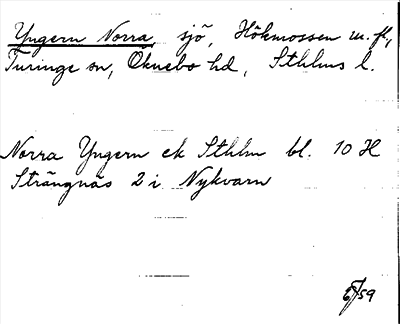 Yngern Norra, sjö, Hökmossen m. fl,
Turinge sn, Öknebo hd, Sthlms l.
Norra Yngern ek Sthlm bl. 10 H
Strängnäs 2 i Nykvarn
59